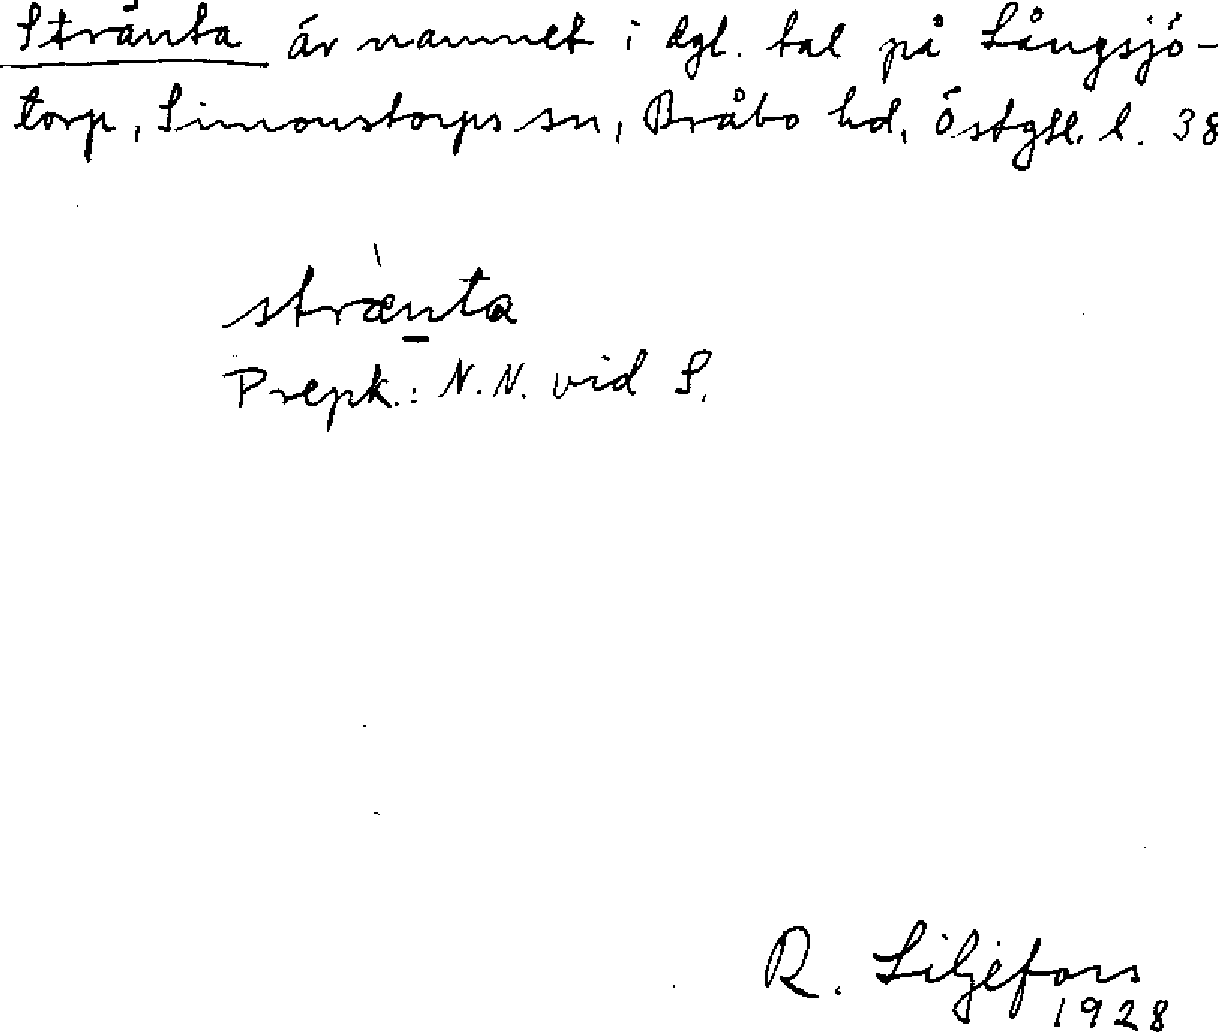 Stränta är namnet i dgl. tal på Långsjö-
torp, Simonstorps sn, Bråbo hd, Östgtl. l. 38
strænta
Prepk.: N.N. vid S.
R. Liljefors
1928